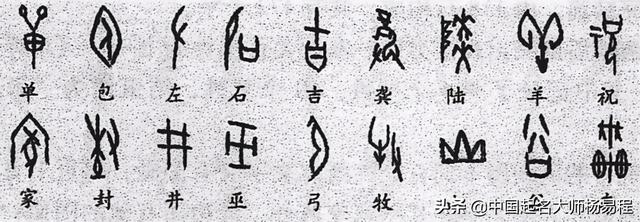 单 包 左 石 吉 龚 陆 羊 祝
家 封 井 巫 弓 牧
头条 @中国起名大师杨易程